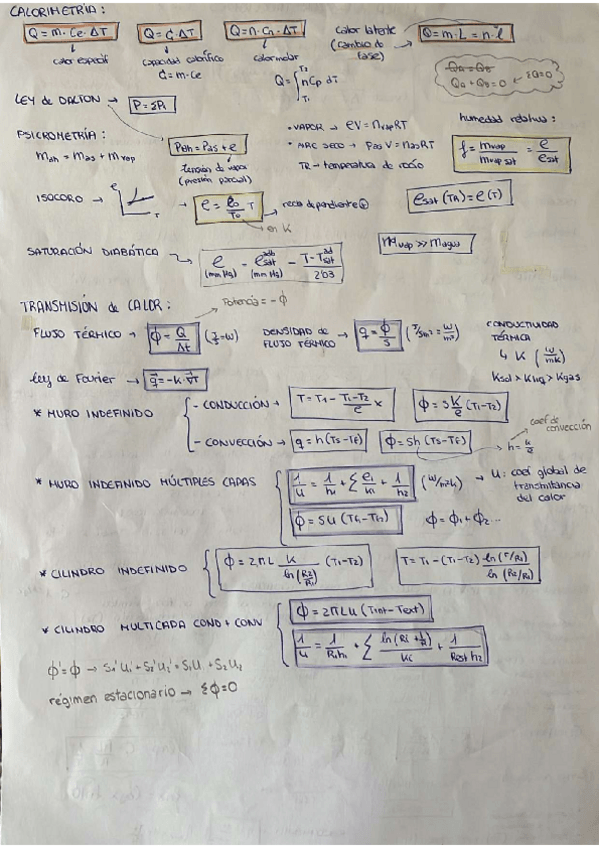 CALORIMETRÍA:
Q = m · Ce · ΔT
calor específ
Q = C · ΔT
capacidad calorífica
C = m · Ce
Q = n · Cn · ΔT
calor molar
calor latente
(cambio de fase)
Q = m · L = n · l
Q = ∫ n Cp dT
T1
QA = QB
QA + QB = 0 ← ΣQ = 0
LEY de DALTON → P = ΣPi
PSICROMETRÍA:
mah = mas + mvap
Pah = Pas + e
tensión de vapor
(presión parcial)
• VAPOR → eV = nvap RT
• AIRE SECO → Pas V = nas RT
TR → temperatura de rocío
humedad relativa:
f = mvap / mvap sat = e / esat
ISOCORO →
e
T
→ e = e0/T0 T → recta dependiente
en K
esat (TR) = e (T)
SATURACIÓN DIABÁTICA
e (mmHg) - esat (mmHg) - T - Tsat / 2'03
mvap >> magua
TRANSMISIÓN de CALOR:
Potencia = - ϕ
FLUJO TÉRMICO → ϕ = Q/Δt (J/s = W)
DENSIDAD de FLUJO TÉRMICO → q = ϕ/S (J/sm² = W/m²)
CONDUCTIVIDAD TÉRMICA
↳ K (W/mK)
Ksol > Kliq > Kgas
Ley de Fourier → q = -K · ∇T
* MURO INDEFINIDO
- CONDUCCIÓN → T = T1 - (T1 - T2)/e x
ϕ = S K/e (T1 - T2)
- CONVECCIÓN → q = h (Ts - Tf)
ϕ = Sh (Ts - Tf)
coef de convección
h = K/e
* MURO INDEFINIDO MÚLTIPLES CAPAS
1/u = 1/h1 + Σ ei/Ki + 1/h2 (W/m²K) → u: coef global de transmitancia del calor
ϕ = Su (Th1 - Th2)
ϕ = ϕ1 + ϕ2...
* CILINDRO INDEFINIDO
ϕ = 2πL K / ln(R2/R1) (T1 - T2)
T = T1 - (T1 - T2) ln(r/R1) / ln(R2/R1)
* CILINDRO MULTICAPA COND + CONV
ϕ = 2πLu (Tint - Text)
1/u = 1/R1h1 + Σ ln(Ri+1/Ri)/Ki + 1/Rext h2
ϕ' = ϕ → S1' u1' + S2' u2' = S1 u1 + S2 u2
régimen estacionario → Σϕ = 0